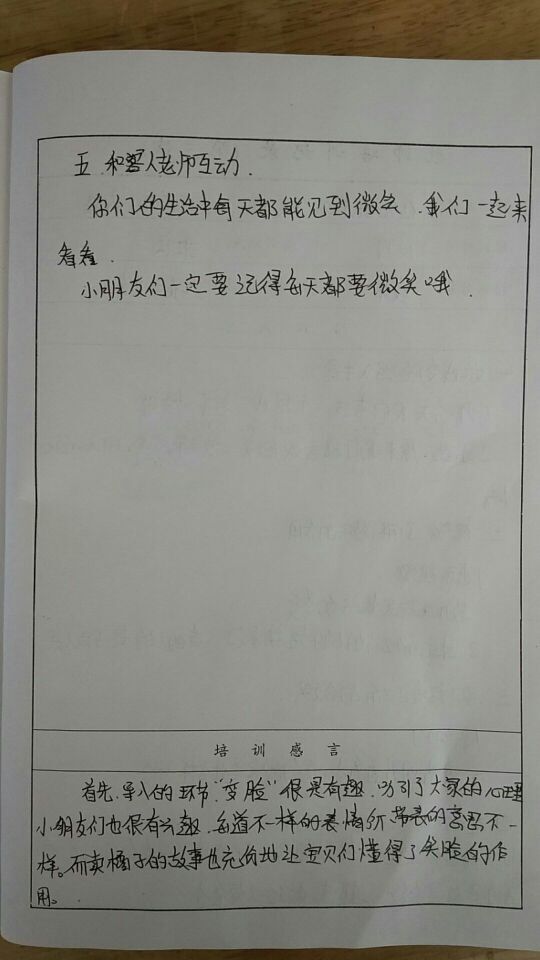 五.和客人老师互动.
你们的生活中每天都能见到微笑.我们一起来
看看.
小朋友们一定要记得每天都要微笑哦.
培训感言
首先,导入的环节,"变脸"很是有趣,吸引了大家的心理
小朋友们也很有兴趣,每道不一样的表情所带表的意思不一
样。而卖橘子的故事也充份地让宝贝们懂得了笑脸的作
用。